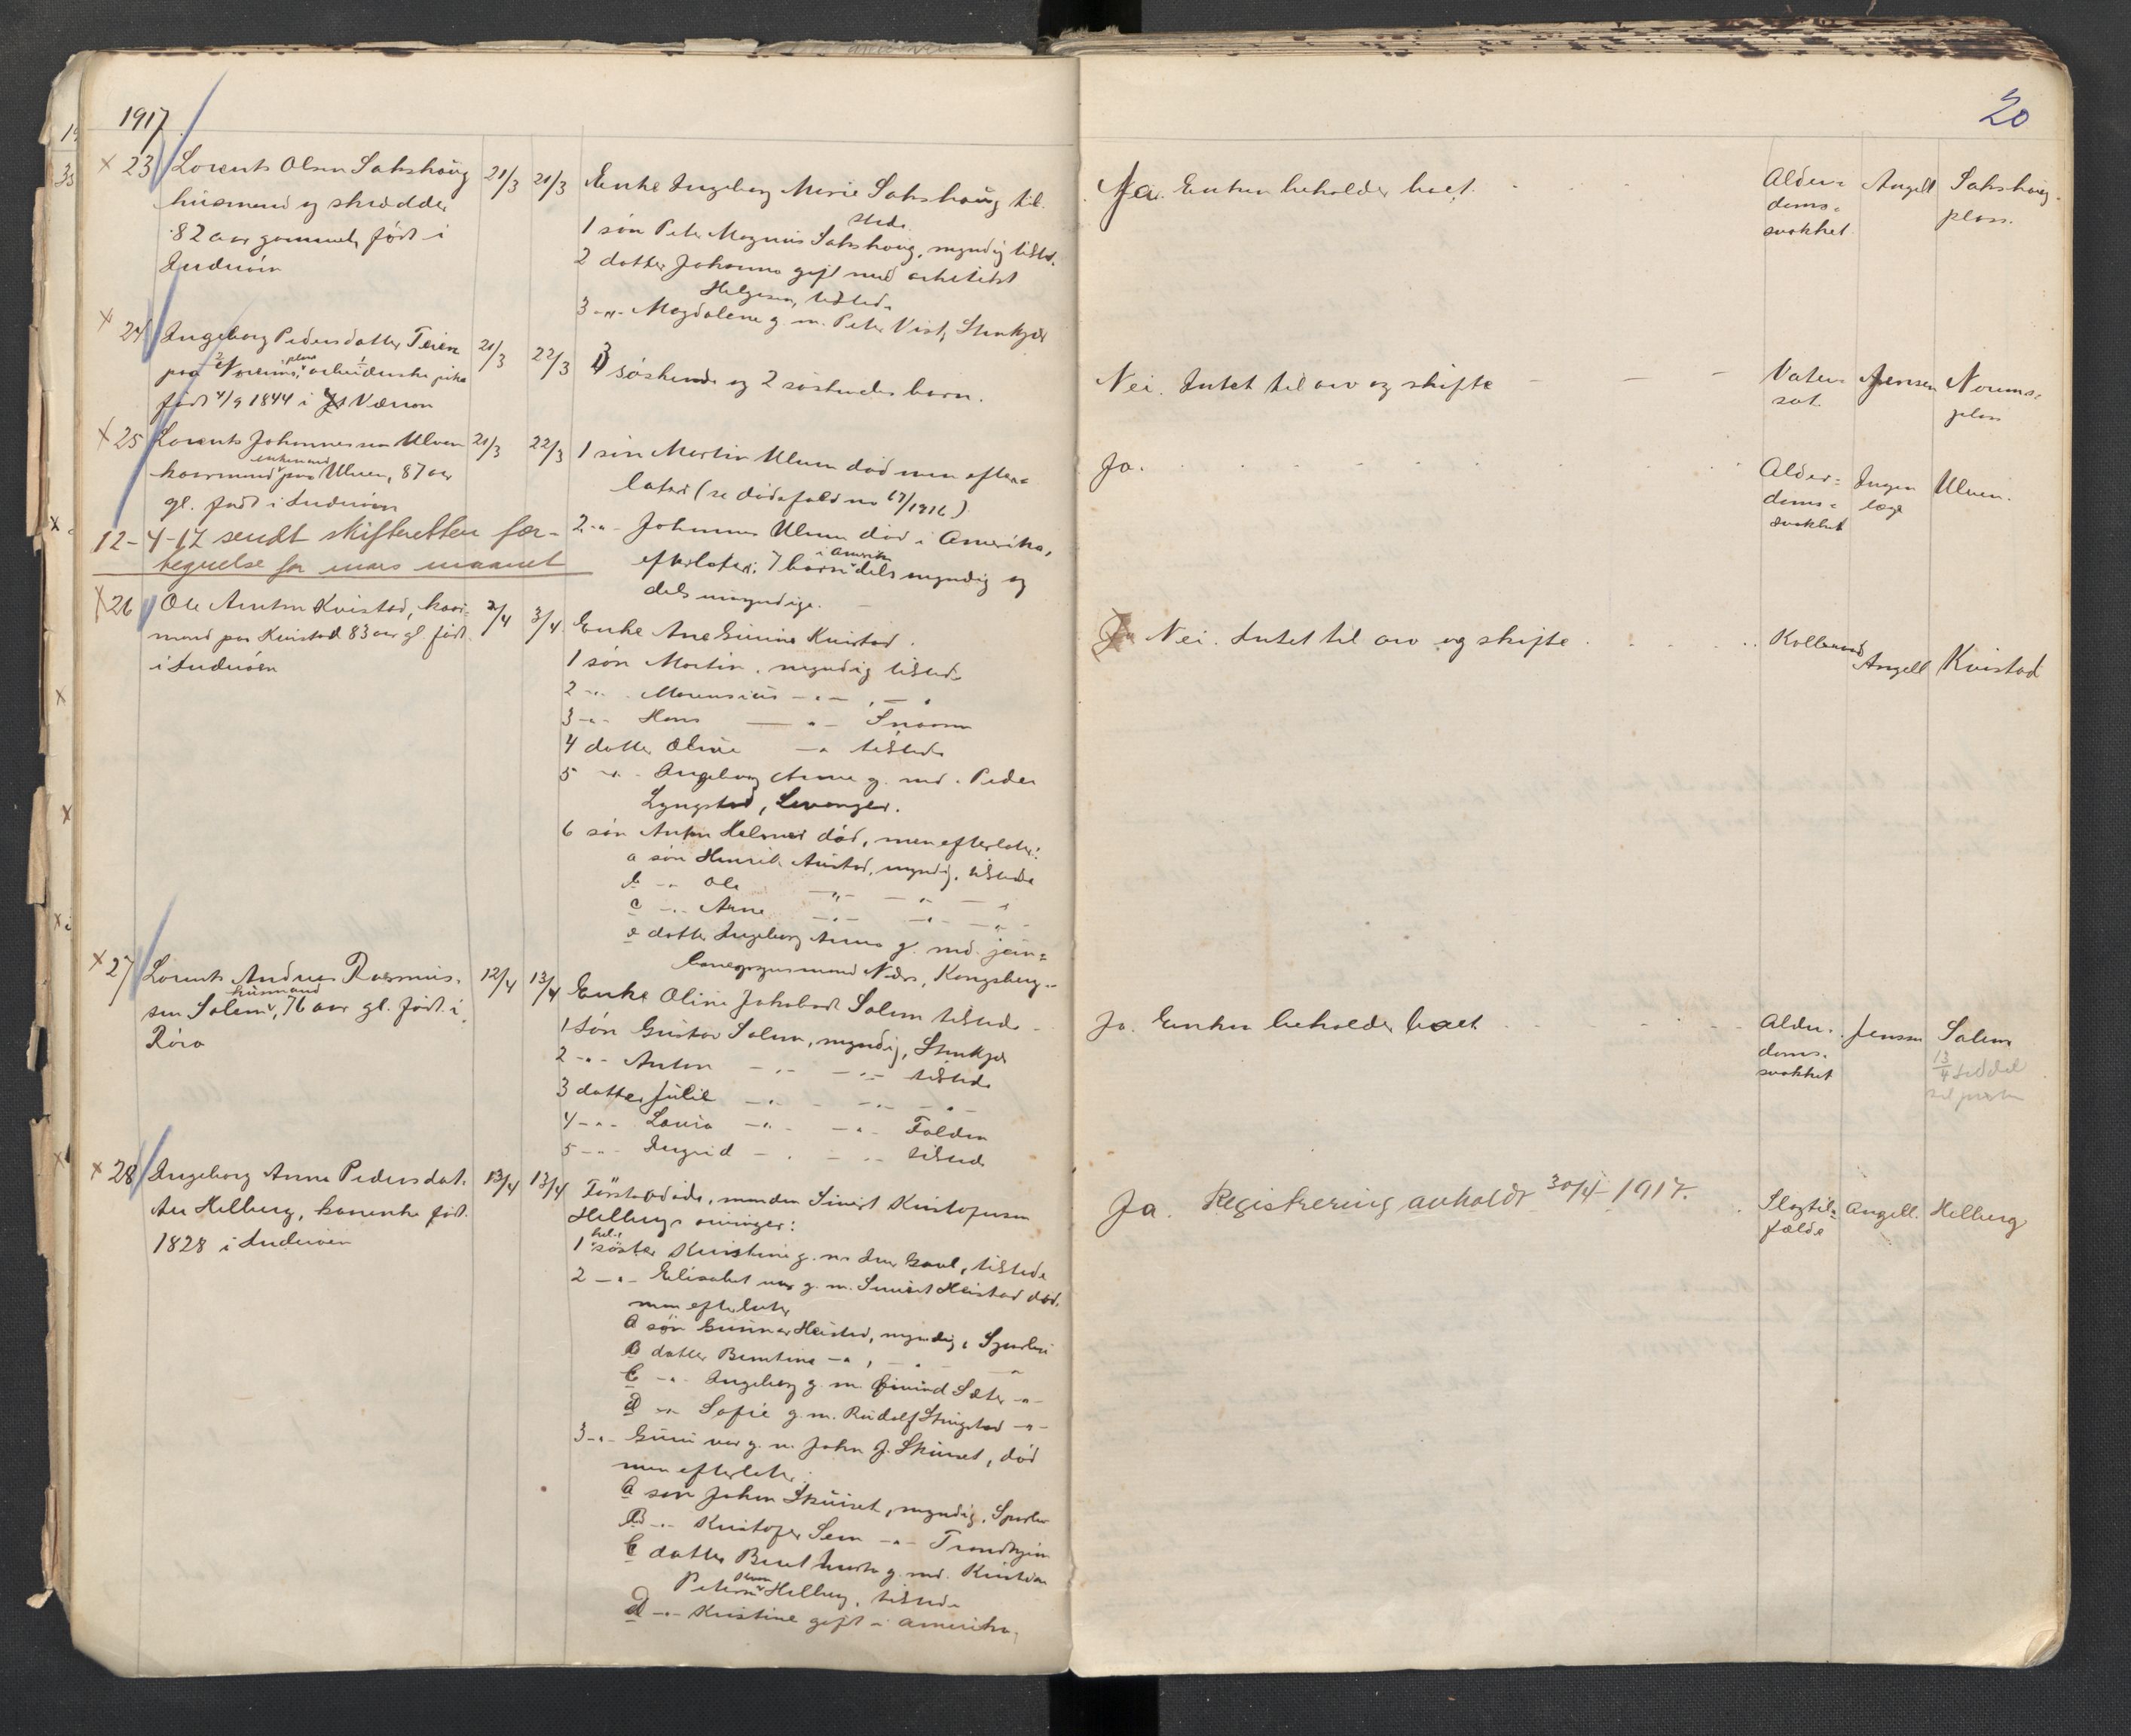 1917
20
23 Lorents Olsen Sakshaug
husmand og skrædder
82 aar gammel, født i
Inderøen
21/3 21/3
Enke Ingeborg Marie Sakshaug til
stede.
1 søn Peter Magnus Sakshaug, myndig tilsted.
2 datter Johanna gift med arkitekt
Helgesen, tilstede
3 -"- Magdalene g. m. Peter Vist, Stenkjær
Ja. Enken beholder boet.
Alder=
doms=
svakhet
Angell
Sakshaug
plass.
24 Ingeborg Pedersdatter Teien
paa Norums plass, arbeiderske pike
født 4/9 1844 i Værran
21/3 22/3
3 søskende og 2 søskendes barn.
Nei. Intet til arv og skifte
Vater
sot.
Jensen
Norums=
plass
25 Lorents Johannessen Ulven
enkemand
kaarmand paa Ulven, 87 aar
gl. født i Inderøen
21/3 22/3
1 søn Martin Ulven død men efter=
later (se dødsfald no 67/1916)
2 -"- Johannes Ulven død i Amerika,
i Amerika
efterlater: 7 barn dels myndig og
dels umyndige.
Ja.
Alder=
doms=
svakhet
Ingen
læge
Ulven.
12-4-17 sendt skifteretten for-
tegnelse for mars maaned
26 Ole Anton Kvistad, kaar=
mand paa Kvistad 83 aar gl. født
i Inderøen
2/4 3/4
Enke Ane Kvistad.
1 søn Martin, myndig tilstede
2 -"- Morensius -"-, -"-
3 -"- Hans -"- Snaasen
4 datter Oline -"- tilstede
5 -"- Ingeborg Anna g. med. Peder
Lyngstad, Levanger.
6 søn Anton Helmer død, men efterlater:
a søn Henrik Kvistad, myndig, tilstede
b -"- Ole -"- -"- -"-
c -"- Arne -"- -"- -"-
e datter Ingeborg Anna g. med. jern=
Næss, Kongsberg.
Nei. Intet til arv og skifte.
Koldbrand
Angell
Kvistad
27 Lorents Andreas Rasmus=
husmand
sen Salem, 76 aar gl. født i
Røra
12/4 13/4
Enke Oline Jakobsdt Salem tilstede
1 søn Gustav Salem, myndig, Stenkjær
2 -"- Anton -"- -"- tilstede
3 datter Julie -"- -"- -"-
4 -"- Laura -"- -"- Folden
5 -"- Ingrid -"- -"- tilstede
Ja. Enken beholder boet
Alder=
doms=
svakhet
Jenssen
Salem
13/4 seddel
til presten
28 Ingeborg Anna Pedersdat=
ter Helberg, kaarenke født
1828 i Inderøen
13/4 13/4
Førstavdøde, manden Sivert Kristofersen
Helbergs arvinger:
hel=
1 søster Kristine g. m. Iver Gavl, tilstede
2 -"- Elisabet var g. m. Sivert Heistad død,
men efterlater
a søn Gunnar Heistad, myndig, Sparbu
B datter Berntine -"-, -"- -"-
C -"- Ingeborg g. m. Eivind Sæter -"-
d -"- Sofie g. m. Rudolf Stingstad -"-
3 -"- Guru var g. m. John J. Skuset, død
men efterlater:
a søn Johan Skuset, myndig, Sparbu
B -"- Kristofer Sem -"- Trondhjem
C datter Beret g. med. Kristian
Petersen Helberg, tilstede
d -"- Kristine gift i Amerika.
Ja. Registrering avholdt 30/4 1917.
Slagtil=
fælde
Angell.
Helberg